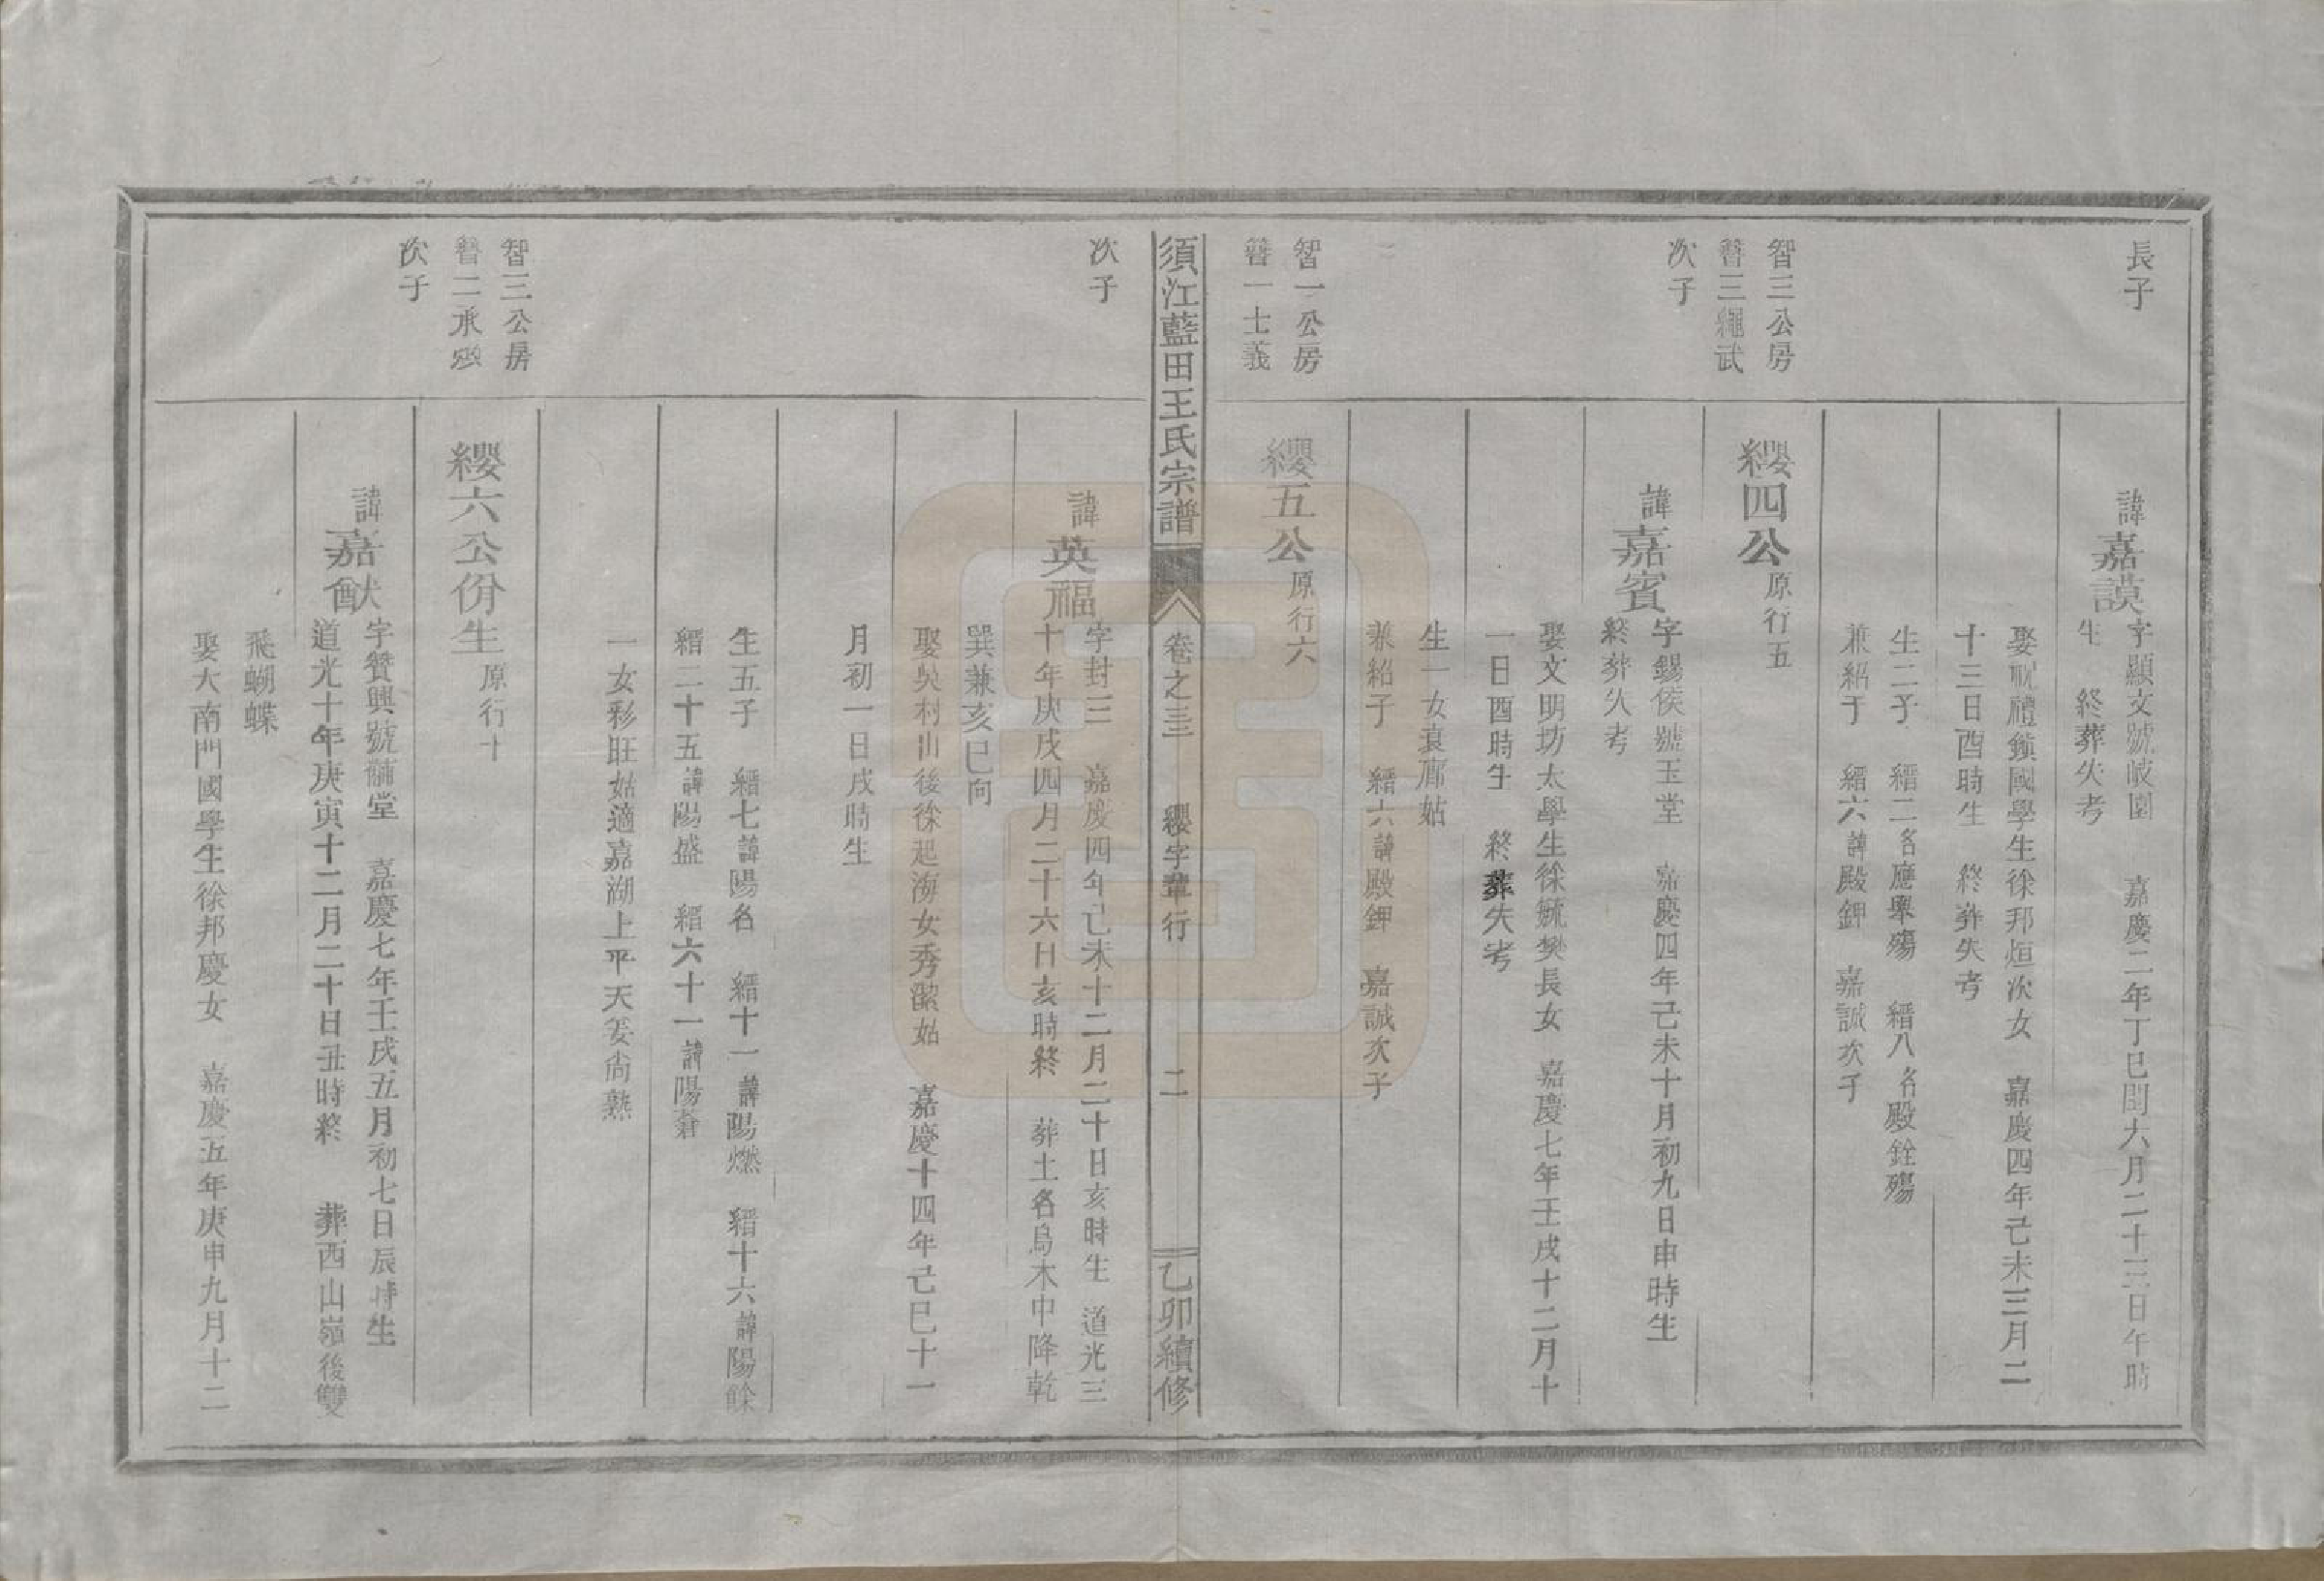 長子
諱嘉謨
字顯文號岐園　嘉慶二年丁巳閏六月二十三日午時
生　終葬失考
娶祝禮鎮國學生徐邦烜次女　嘉慶四年己未三月二
十三日酉時生　終葬失考
生二子　縉二名應舉殤　縉八名殿銓殤
兼紹子　縉六諱殿鉀　嘉誠次子
智三公房
瞽三繩武
次子
纓四公原行五
諱嘉賓
字錫侯號玉堂　嘉慶四年己未十月初九日申時生
終葬失考
娶文明坊太學生徐毓樊長女　嘉慶七年壬戌十二月十
一日酉時生　終葬失考
生一女袁廊姑
兼紹子　縉六諱殿鉀　嘉誠次子
智一公房
瞽一士義
纓五公原行六
須江藍田王氏宗譜　卷之三　纓字輩行　二　乙卯續修
次子
諱英福
字封三　嘉慶四年己未十二月二十日亥時生　道光三
十年庚戌四月二十六日亥時終　葬土名烏木中降乾
巽兼亥巳向
娶吳村山後徐起海女秀潔姑　嘉慶十四年己巳十一
月初一日戌時生
生五子　縉七諱陽名　縉十一諱陽燃　縉十六諱陽餘
縉二十五諱陽盛　縉六十一諱陽蒼
一女彩旺姑適嘉湖上平天姜尚熟
智三公房
瞽二承
次子
纓六公份生原行十
諱嘉猷
字贊興號黼堂　嘉慶七年壬戌五月初七日辰時生
道光十年庚寅十二月二十日丑時終　葬西山嶺後雙
飛蝴蝶
娶大南門國學生徐邦慶女　嘉慶五年庚申九月十二